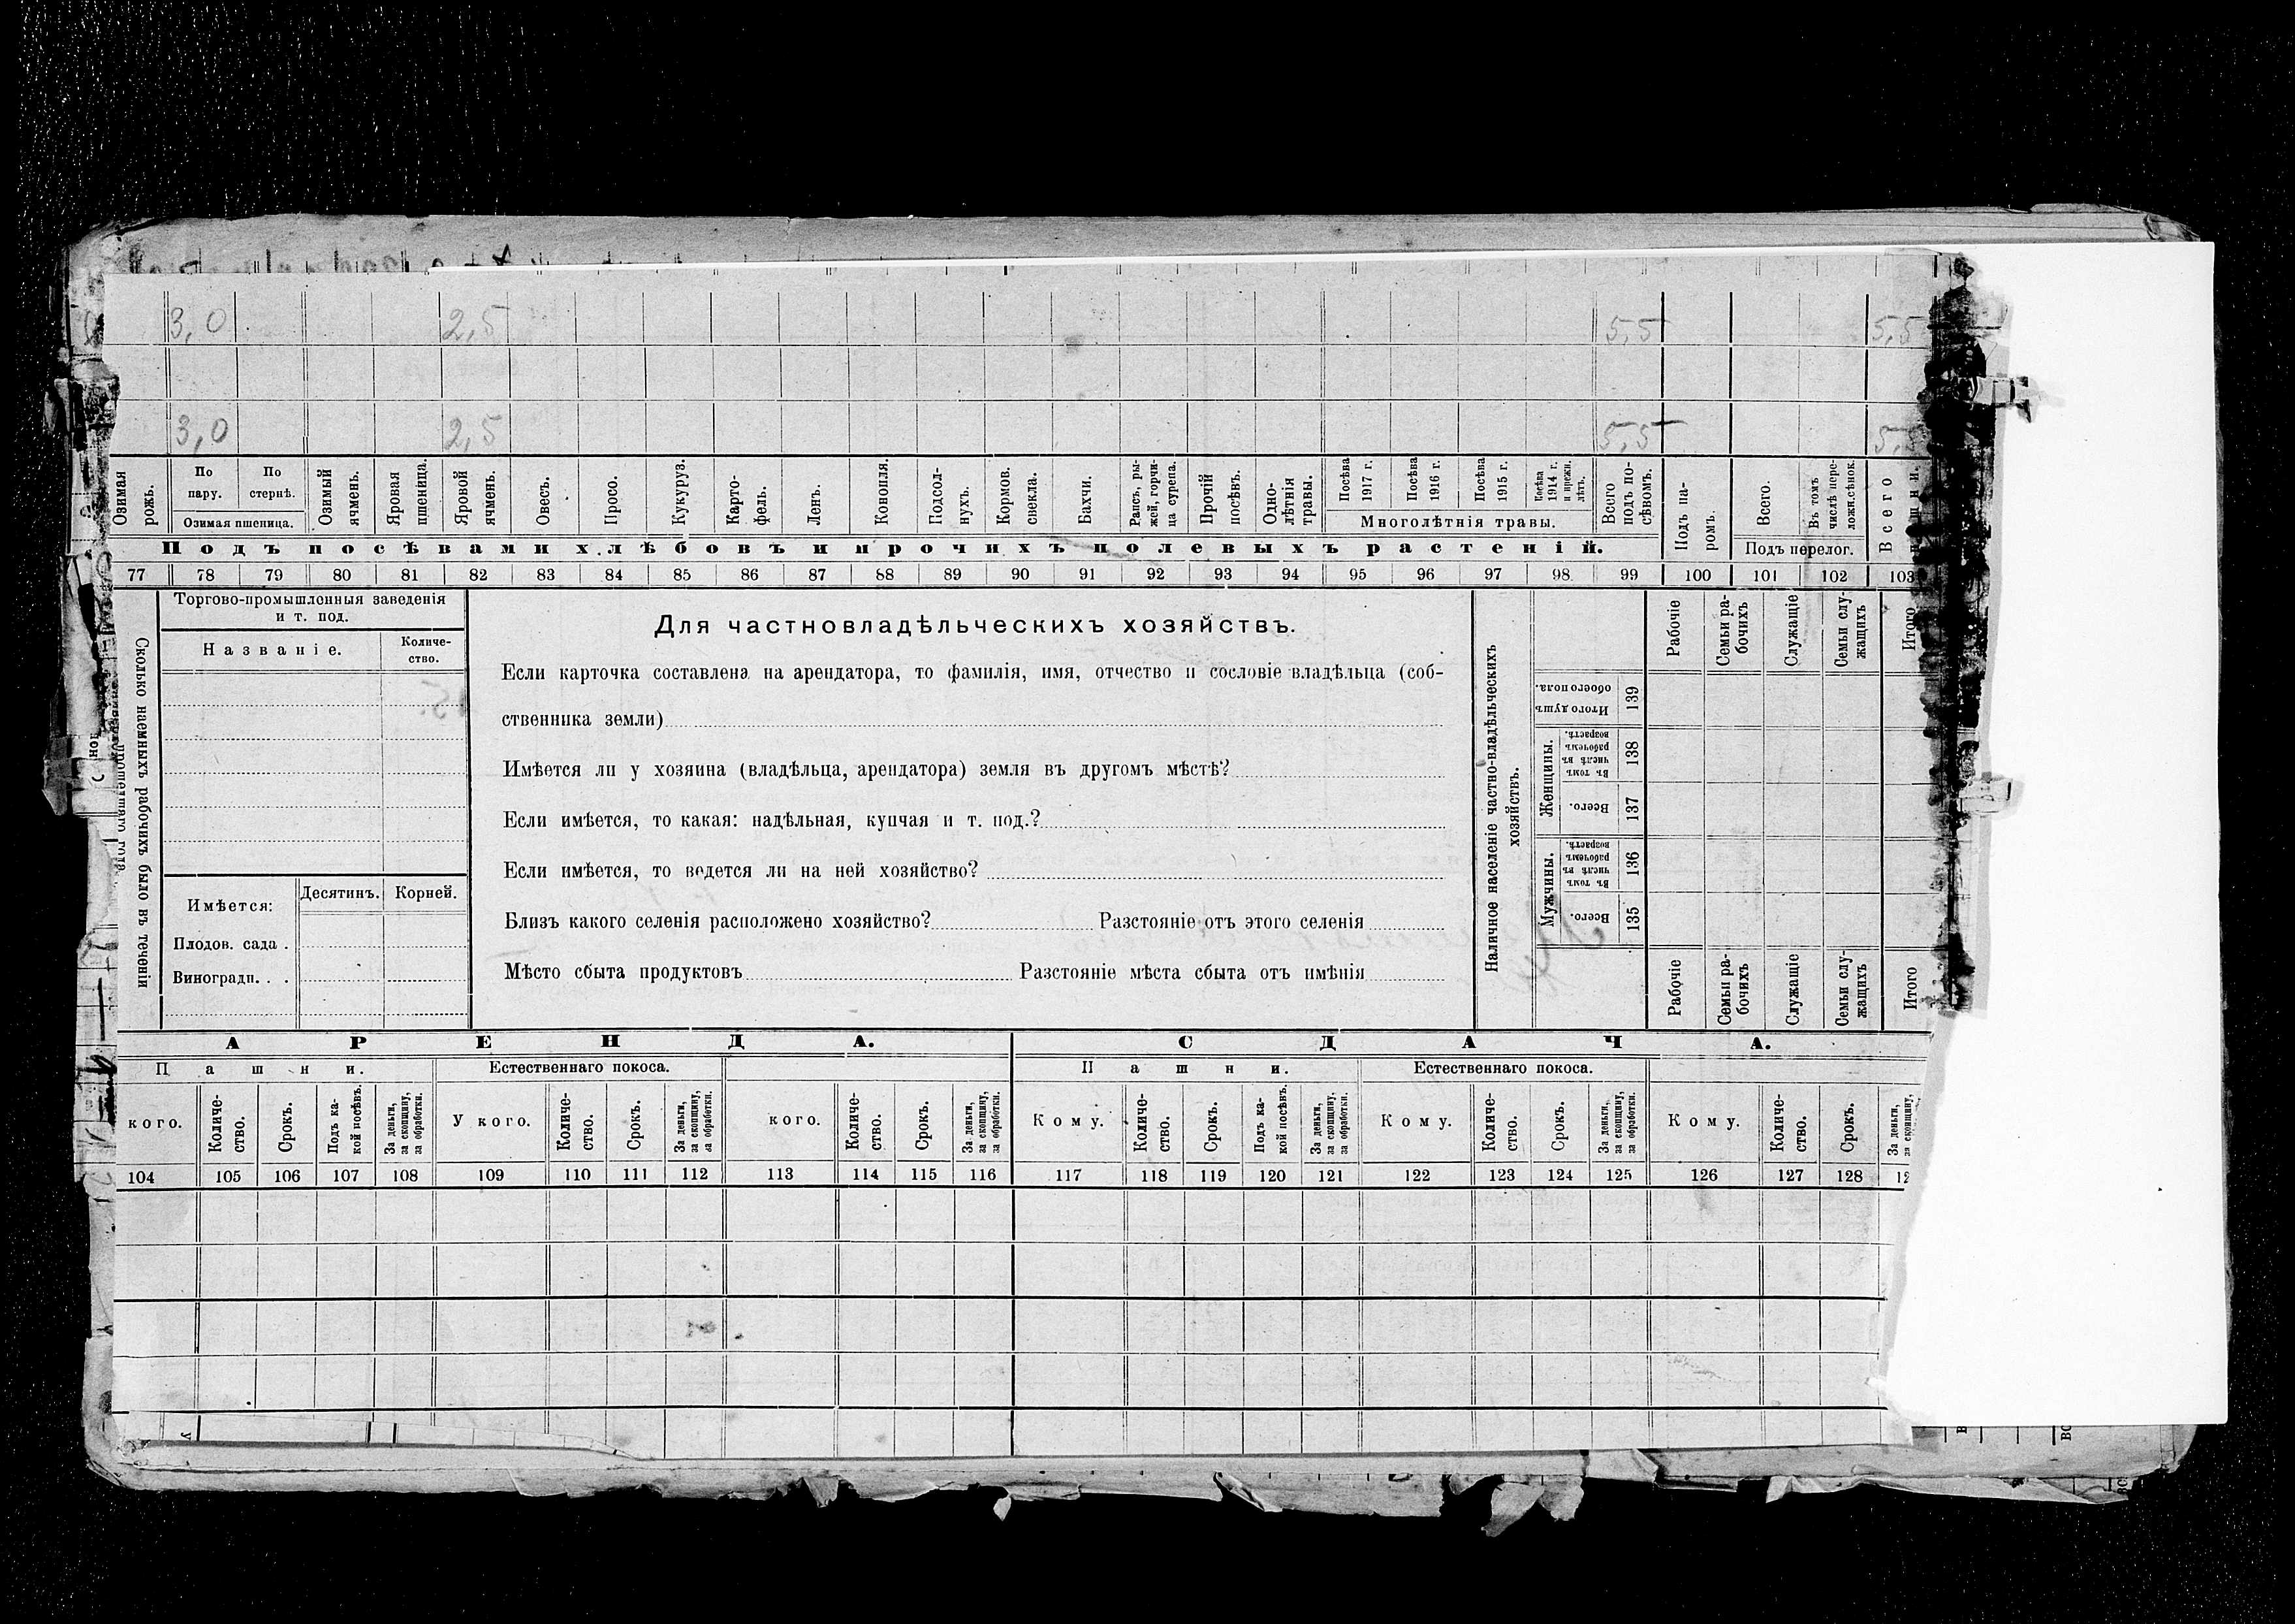 3,0 2,5 5,5 5,5
3,0 2,5 5,5
Озимая рожь.
По пару.
По стернѣ.
Озимая пшеница.
Озимый ячмень.
Яровая пшеница.
Яровой ячмень.
Овесъ.
Просо.
Кукуруз.
Карто-
фель.
Ленъ.
Конопля.
Подсол-
нухъ.
Кормов. свекла.
Бахчи.
Рапсъ, ры-
жей, горчи-
ца сурепа.
Прочій посѣвъ.
Одно-
лѣтнія
травы.
Посѣва 1917 г.
Посѣва 1916 г.
Посѣва 1915 г.
Посѣва 1914 г. и прежн. лѣтъ.
Многолѣтнія травы.
Всего подъ по-
сѣвомъ.
Подъ па-
ромъ.
Всего.
Въ томъ числѣ пере-
ложн.сѣнок.
Подъ перелог.
Всего
Подъ посѣвами хлѣбовъ и прочихъ полевыхъ растеній.
77 78 79 80 81 82 83 84 85 86 87 88 89 90 91 92 93 94 95 96 97 98 99 100 101 102 103
Сколько наемныхъ рабочихъ было въ теченіи
прошедшаго года
Торгово-промышленныя заведенія
и т. под.
Названіе.
Количе-
ство.
Имѣется:
Десятинъ.
Корней.
Плодов. сада .
Виноградн. . .
Для частновладѣльческихъ хозяйствъ.
Если карточка составлена на арендатора, то фамилія, имя, отчество и сословіе владѣльца (соб-
ственника земли)
Имѣется ли у хозяина (владѣльца, арендатора) земля въ другомъ мѣстѣ?
Если имѣется, то какая: надѣльная, купчая и т. под.?
Если имѣется, то ведется ли на ней хозяйство?
Близъ какого селенія расположено хозяйство? Разстояніе отъ этого селенія
Мѣсто сбыта продуктовъ Разстояніе мѣста сбыта отъ имѣнія
Наличное населеніе частно-владѣльческихъ
хозяйствъ.
Рабочіе
Семьи ра-
бочихъ
Служащіе
Семьи слу-
жащихъ
Итого
Итого душъ обоего пола.
139
Женщины.
Въ томъ числѣ въ рабочемъ возрастѣ.
138
Всего.
137
Мужчины.
Въ томъ числѣ въ рабочемъ возрастѣ.
136
Всего.
135
Рабочіе
Семьи ра-
бочихъ
Служащіе
Семьи слу-
жащихъ
Итого
АРЕНДА. СДАЧА.
Пашни. Естественнаго покоса. Пашни. Естественнаго покоса.
кого.
Количе-
ство.
Срокъ.
Подъ ка-
кой посѣвъ.
За деньги,
за скопщину,
за обработки.
У кого.
Количе-
ство.
Срокъ.
За деньги,
за скопщину,
за обработки.
кого.
Количе-
ство.
Срокъ.
За деньги,
за скопщину,
за обработки.
Кому.
Количе-
ство.
Срокъ.
Подъ ка-
кой посѣвъ.
За деньги,
за скопщину,
за обработки.
Кому.
Количе-
ство.
Срокъ.
За деньги,
за скопщину,
за обработки.
Кому.
Количе-
ство.
Срокъ.
За деньги,
за скопщину,
104 105 106 107 108 109 110 111 112 113 114 115 116 117 118 119 120 121 122 123 124 125 126 127 128